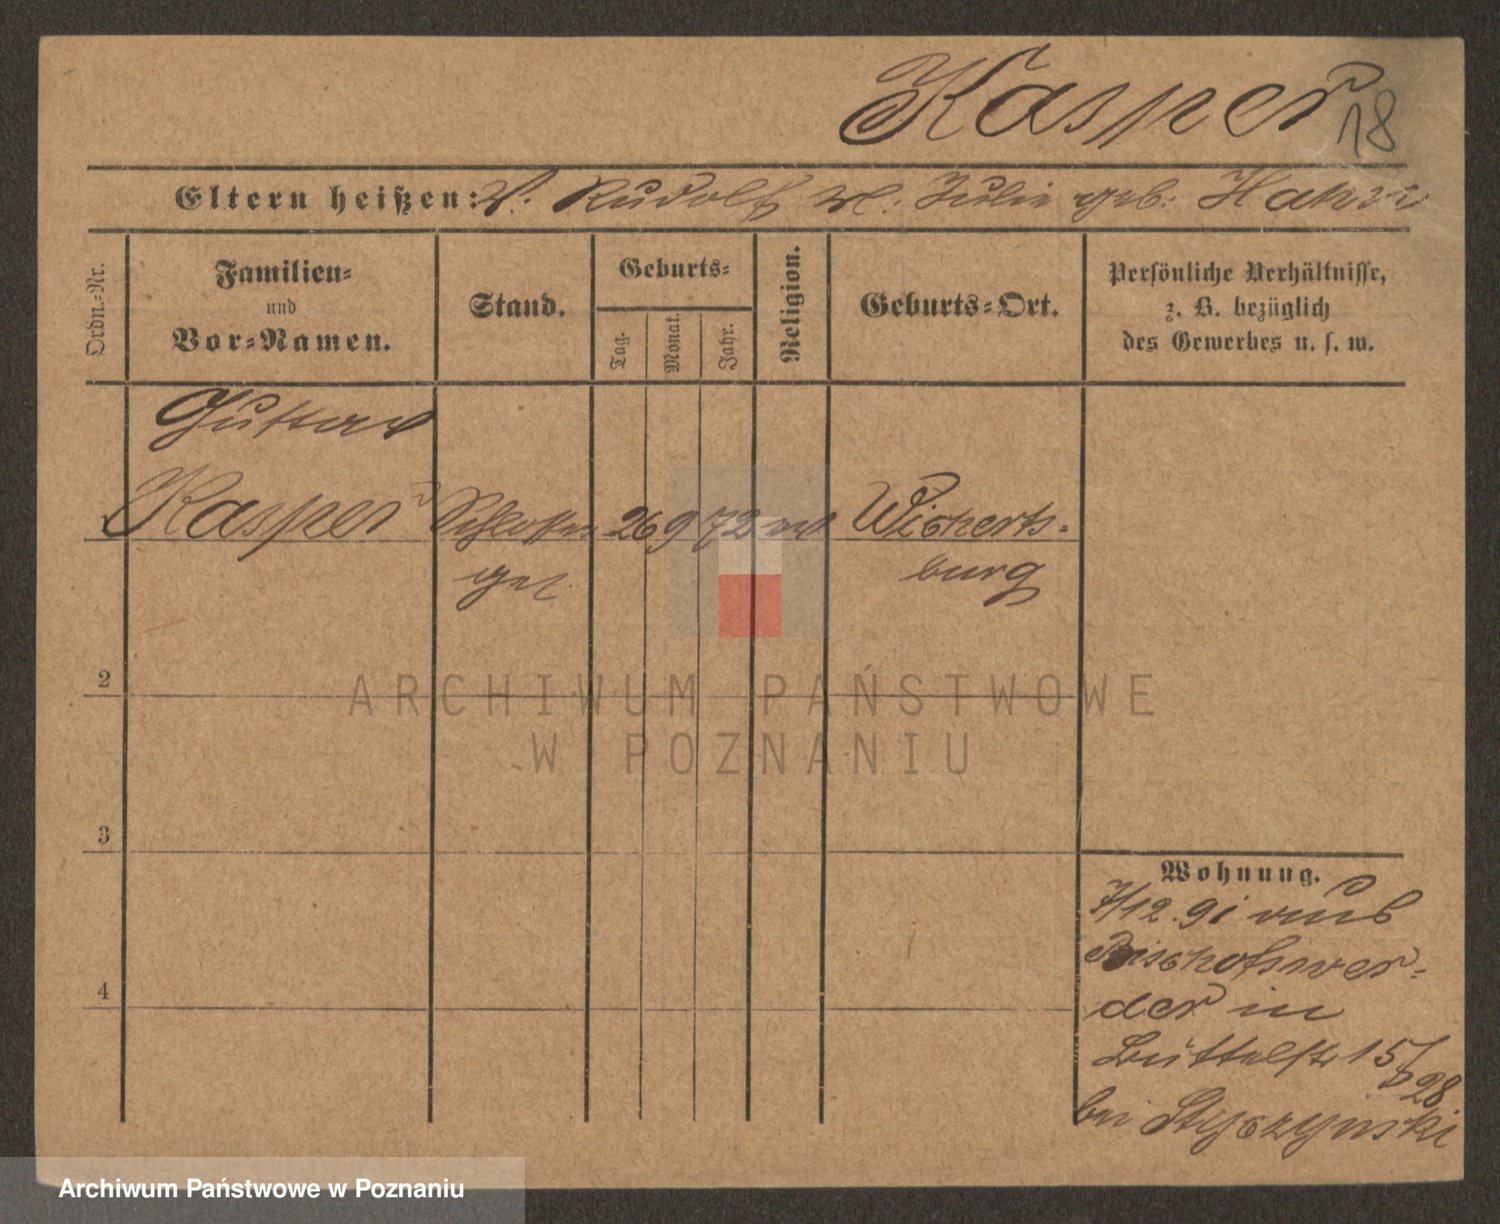 Kasper
18
Eltern heißen: V. Rudolf M. Julie geb. Hahn
Ordn.-Nr.
Familien-
und
Vor-Namen.
Stand.
Geburts-
Tag.
Monat.
Jahr.
Religion.
Geburts-Ort.
Persönliche Verhältnisse,
z. B. bezüglich
des Gewerbes u. s. w.
Gustav
Kasper Schlosser 26 9 72 Wicherts-
ges. burg
2
3
4
Wohnung.
7/12.91 aus
Bischofswer-
der in
Büttelstr 15/
28
bei Styszynski
ARCHIWUM PAŃSTWOWE
W POZNANIU
Archiwum Państwowe w Poznaniu